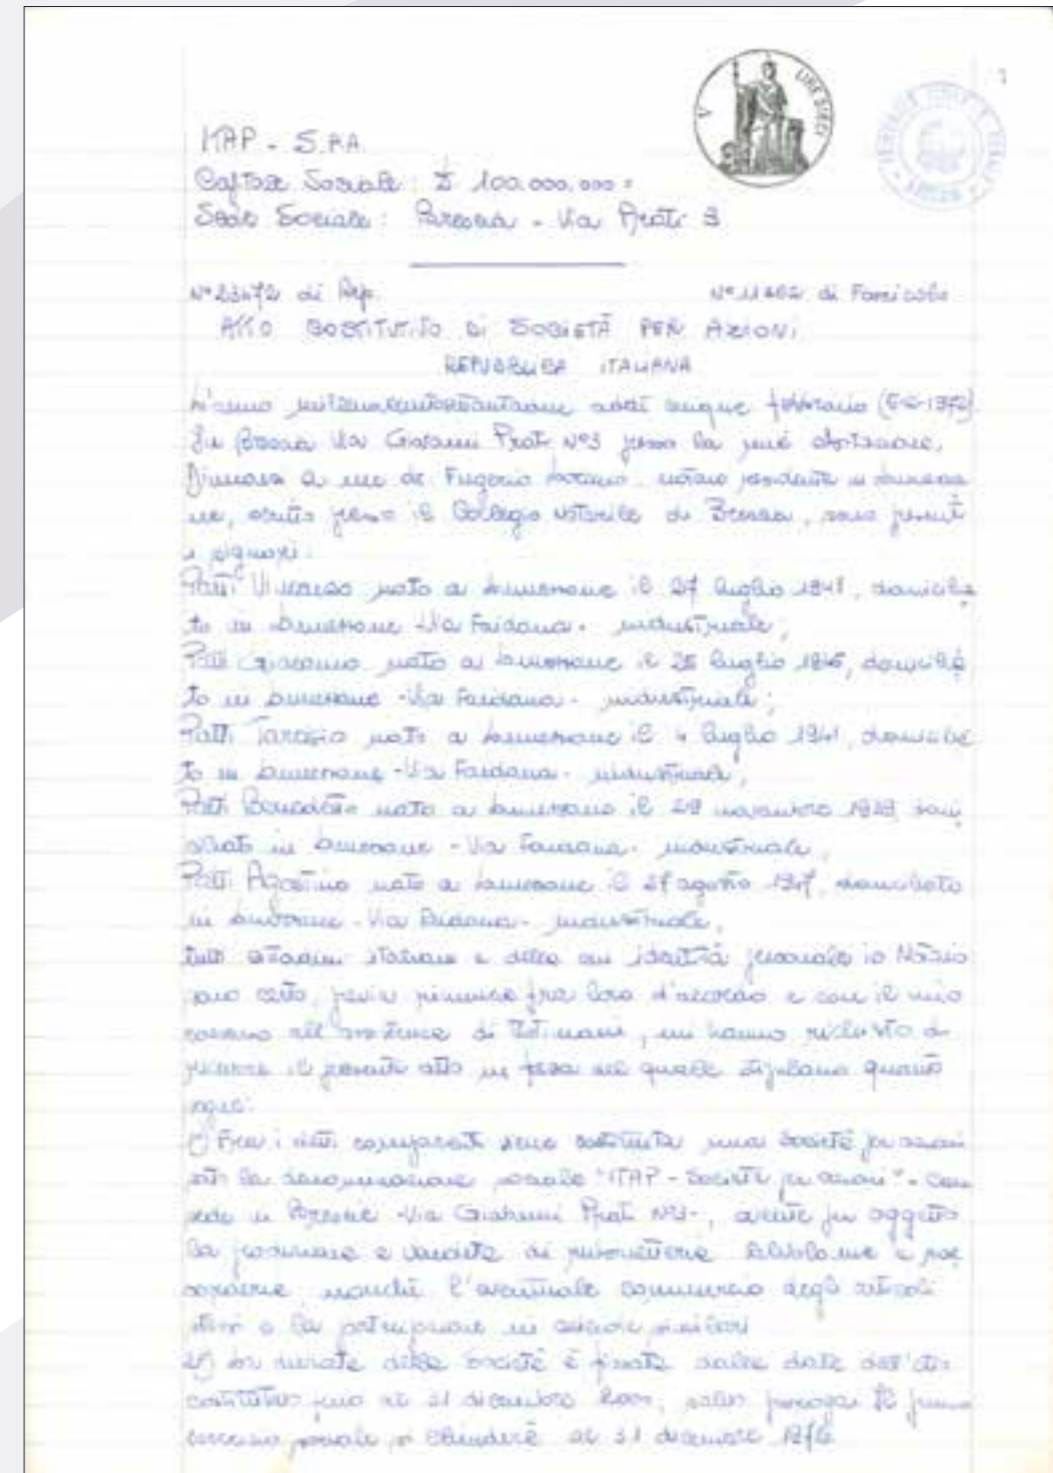 V LIRE DIECI
ITAP - S.P.A.
Capitale Sociale: £ 100.000.000=
Sede Sociale: Brescia - Via Prati 3
N° di Rep. N° di Fascicolo
ATTO COSTITUTIVO DI SOCIETÀ PER AZIONI
REPUBBLICA ITALIANA
L'anno addì cinque febbraio
In Brescia Via Giovanni Prati N°3 presso la mia abitazione,
Dinanzi a me dr. Eugenio notaio residente in Lumezza
ne, iscritto presso il Collegio notarile di Brescia, sono presenti
i signori:
Patti Vincenzo nato a Lumezzane il 27 luglio domicilia
to in Lumezzane - Via Faidana - industriale;
Patti Giacomo nato a Lumezzane il 25 luglio domicilia
to in Lumezzane - Via Faidana - industriale;
Patti Tarcisio nato a Lumezzane il 4 luglio 1941, domicilia
to in Lumezzane - Via Faidana - industriale;
Patti Benedetto nato a Lumezzane il 29 novembre domi
ciliato in Lumezzane - Via Faidana - industriale,
Patti Agostino nato a Lumezzane il 27 agosto domiciliato
in Lumezzane - Via Faidana - industriale,
tutti cittadini italiani e della cui identità personale io Notaio
sono certo, previa rinuncia fra loro d'accordo e con il mio
consenso all'assistenza di testimoni, mi hanno richiesto di
ricevere il presente atto in forza del quale stipulano quanto
segue:
1°) Fra i comparenti viene costituita una Società per azioni
sotto la denominazione sociale "ITAP - Società per azioni" - con
sede in Brescia - Via Giovanni Prati N°3 -, avente per oggetto
la produzione e vendita di rubinetterie valvolame e rac
corderie nonché l'eventuale commercio degli articoli
stessi e la partecipazione in aziende similari
2°) La durata della società è fissata dalla data dell'atto
costitutivo fino al 31 dicembre salvo proroga. Il primo
esercizio sociale si chiuderà al 31 dicembre